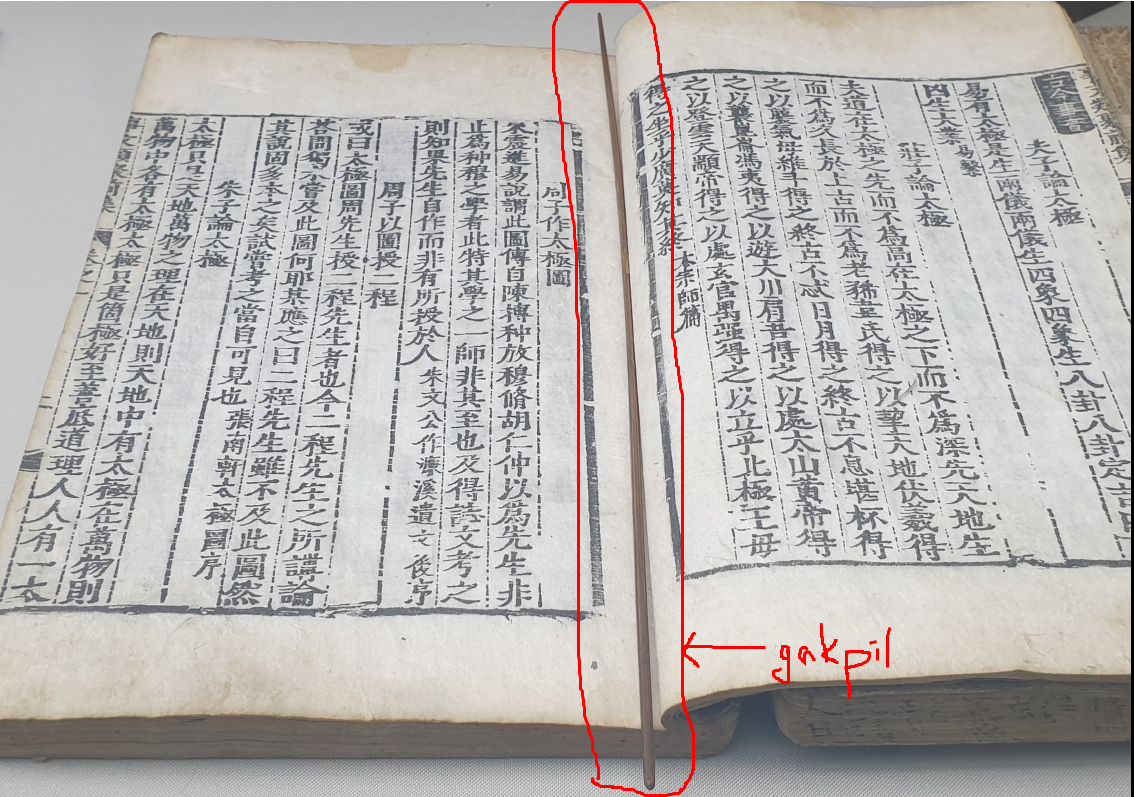 夫子論太極
易有太極是生兩儀兩儀生四象四象生八卦八卦定吉
凶生大業 易繫
莊子論太極
夫道在太極之先而不爲高在太極之下而不爲深先天地生
而不爲久長於上古而不爲老狶韋氏得之以挈天地伏羲得
之以襲氣母維斗得之終古不忒日月得之終古不息堪杯得
之以襲崑崙馮夷得之以遊大川肩吾得之以處太山黃帝得
之以登雲天顓帝得之以處玄宮禺强得之以立乎北極王母
得之坐乎少廣莫知 大宗師篇
周子作太極圖
朱震進易說謂此圖傳自陳摶种放穆脩胡仁仲以爲先生非
止爲种穆之學者此特其學之一師非其至也及得誌文考之
則知果先生自作而非有所授於人 朱文公作濂溪遺文後序
周子以圖授二程
或曰太極圖周先生授二程先生者也今二程先生之所講論
荅問獨不嘗及此圖何耶景應之曰二程先生雖不及此圖然
其說固多本之矣試嘗考之當自可見也 張南軒太極圖序
朱子論太極
太極只是天地萬物之理在天地則天地中有太極在萬物則
萬物中各有太極太極只是箇極好至善底道理人人有一太
gakpil